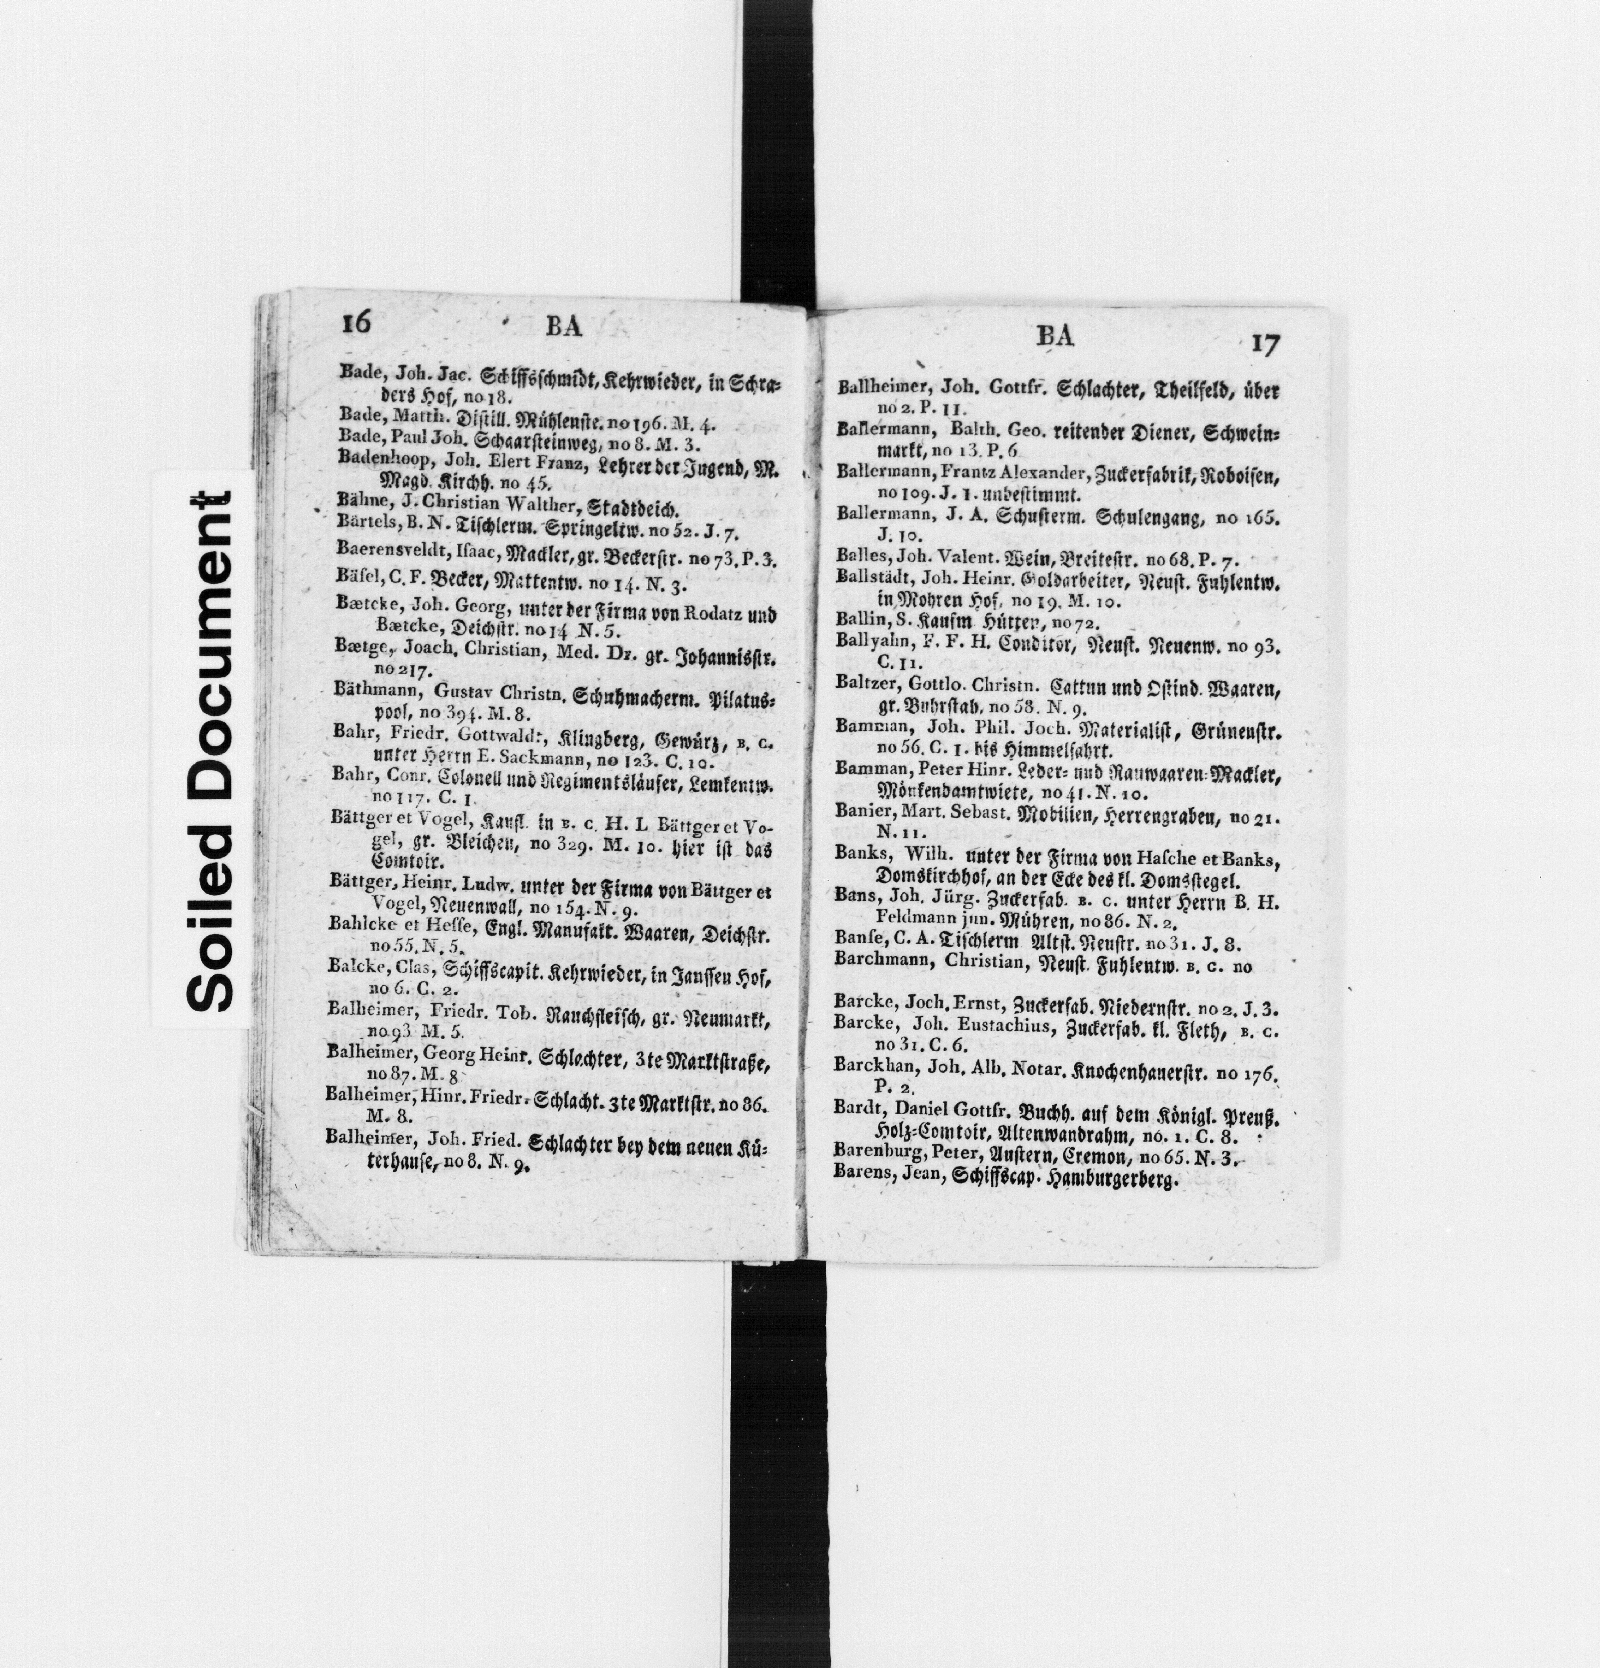 Soiled Document
16 BA
Bade, Joh. Jac. Schiffsschmidt, Kehrwieder, in Schra-
ders Hof, no 18.
Bade, Matth. Distill. Mühlenstr. no 196. M. 4.
Bade, Paul Joh. Schaarsteinweg, no 8. M. 3.
Badenhoop, Joh. Elert Franz, Lehrer der Jugend, M.
Magd. Kirchh. no 45.
Bähne, J. Christian Walther, Stadtdeich.
Bärtels, B. N. Tischlerm. Springeltw. no 52. J. 7.
Baerensveldt, Isaac, Mackler, gr. Beckerstr. no 73. P. 3.
Bäsel, C. F. Becker, Mattentw. no 14. N. 3.
Bætcke, Joh. Georg, unter der Firma von Rodatz und
Bætcke, Deichstr. no 14 N. 5.
Bætge, Joach. Christian, Med. Dr. gr. Johannisstr.
no 217.
Bäthmann, Gustav Christn. Schuhmacherm. Pilatus-
pool, no 394. M. 8.
Bahr, Friedr. Gottwaldt, Klingberg, Gewürz, B. C.
unter Herrn E. Sackmann, no 123. C. 10.
Bahr, Conr. Colonell und Regimentsläufer, Lemkentw.
no 117. C. 1.
Bättger et Vogel, Kaufl. in B. C. H. L Bättger et Vo-
gel, gr. Bleichen, no 329. M. 10. hier ist das
Comtoir.
Bättger, Heinr. Ludw. unter der Firma von Bättger et
Vogel, Neuenwall, no 154. N. 9.
Bahlcke et Hesse, Engl. Manufakt. Waaren, Deichstr.
no 55. N. 5.
Balcke, Clas, Schiffscapit. Kehrwieder, in Janssen Hof,
no 6. C. 2.
Balheimer, Friedr. Tob. Rauchfleisch, gr. Neumarkt,
no 93 M. 5.
Balheimer, Georg Heinr. Schlachter, 3te Marktstraße,
no 87. M. 8
Balheimer, Hinr. Friedr. Schlacht. 3te Marktstr. no 86.
M. 8.
Balheimer, Joh. Fried. Schlachter bey dem neuen Kü-
terhause, no 8. N. 9.
BA 17
Ballheimer, Joh. Gottfr. Schlachter, Theilfeld, über
no 2. P. 11.
Ballermann, Balth. Geo. reitender Diener, Schwein-
markt, no 13. P. 6
Ballermann, Frantz Alexander, Zuckerfabrik, Roboisen,
no 109. J. 1. unbestimmt.
Ballermann, J. A. Schusterm. Schulengang, no 165.
J. 10.
Balles, Joh. Valent. Wein, Breitestr. no 68. P. 7.
Ballstädt, Joh. Heinr. Goldarbeiter, Neust. Fuhlentw.
in Mohren Hof, no 19. M. 10.
Ballin, S. Kaufm Hütten, no 72.
Ballyahn, F. F. H. Conditor, Neust. Neuenw. no 93.
C. 11.
Baltzer, Gottlo. Christn. Cattun und Ostind. Waaren,
gr. Buhrstah, no 58. N. 9.
Bamman, Joh. Phil. Joch. Materialist, Grünenstr.
no 56. C. 1. bis Himmelfahrt.
Bamman, Peter Hinr. Leder- und Rauwaaren-Mackler,
Mönkendamtwiete, no 41. N. 10.
Banier, Mart. Sebast. Mobilien, Herrengraben, no 21.
N. 11.
Banks, Wilh. unter der Firma von Hasche et Banks,
Domskirchhof, an der Ecke des kl. Domsstegel.
Bans, Joh. Jürg. Zuckerfab. B. C. unter Herrn B. H.
Feldmann jun. Mühren, no 86. N. 2.
Banse, C. A. Tischlerm Altst. Neustr. no 31. J. 8.
Barchmann, Christian, Neust. Fuhlentw. B. C. no
Barcke, Joch. Ernst, Zuckerfab. Niedernstr. no 2. J. 3.
Barcke, Joh. Eustachius, Zuckerfab. kl. Fleth, B. C.
no 31. C. 6.
Barckhan, Joh. Alb. Notar. Knochenhauerstr. no 176.
P. 2.
Bardt, Daniel Gottfr. Buchh. auf dem Königl. Preuß.
Holz-Comtoir, Altenwandrahm, no. 1. C. 8.
Barenburg, Peter, Austern, Cremon, no 65. N. 3.
Barens, Jean, Schiffscap. Hamburgerberg.